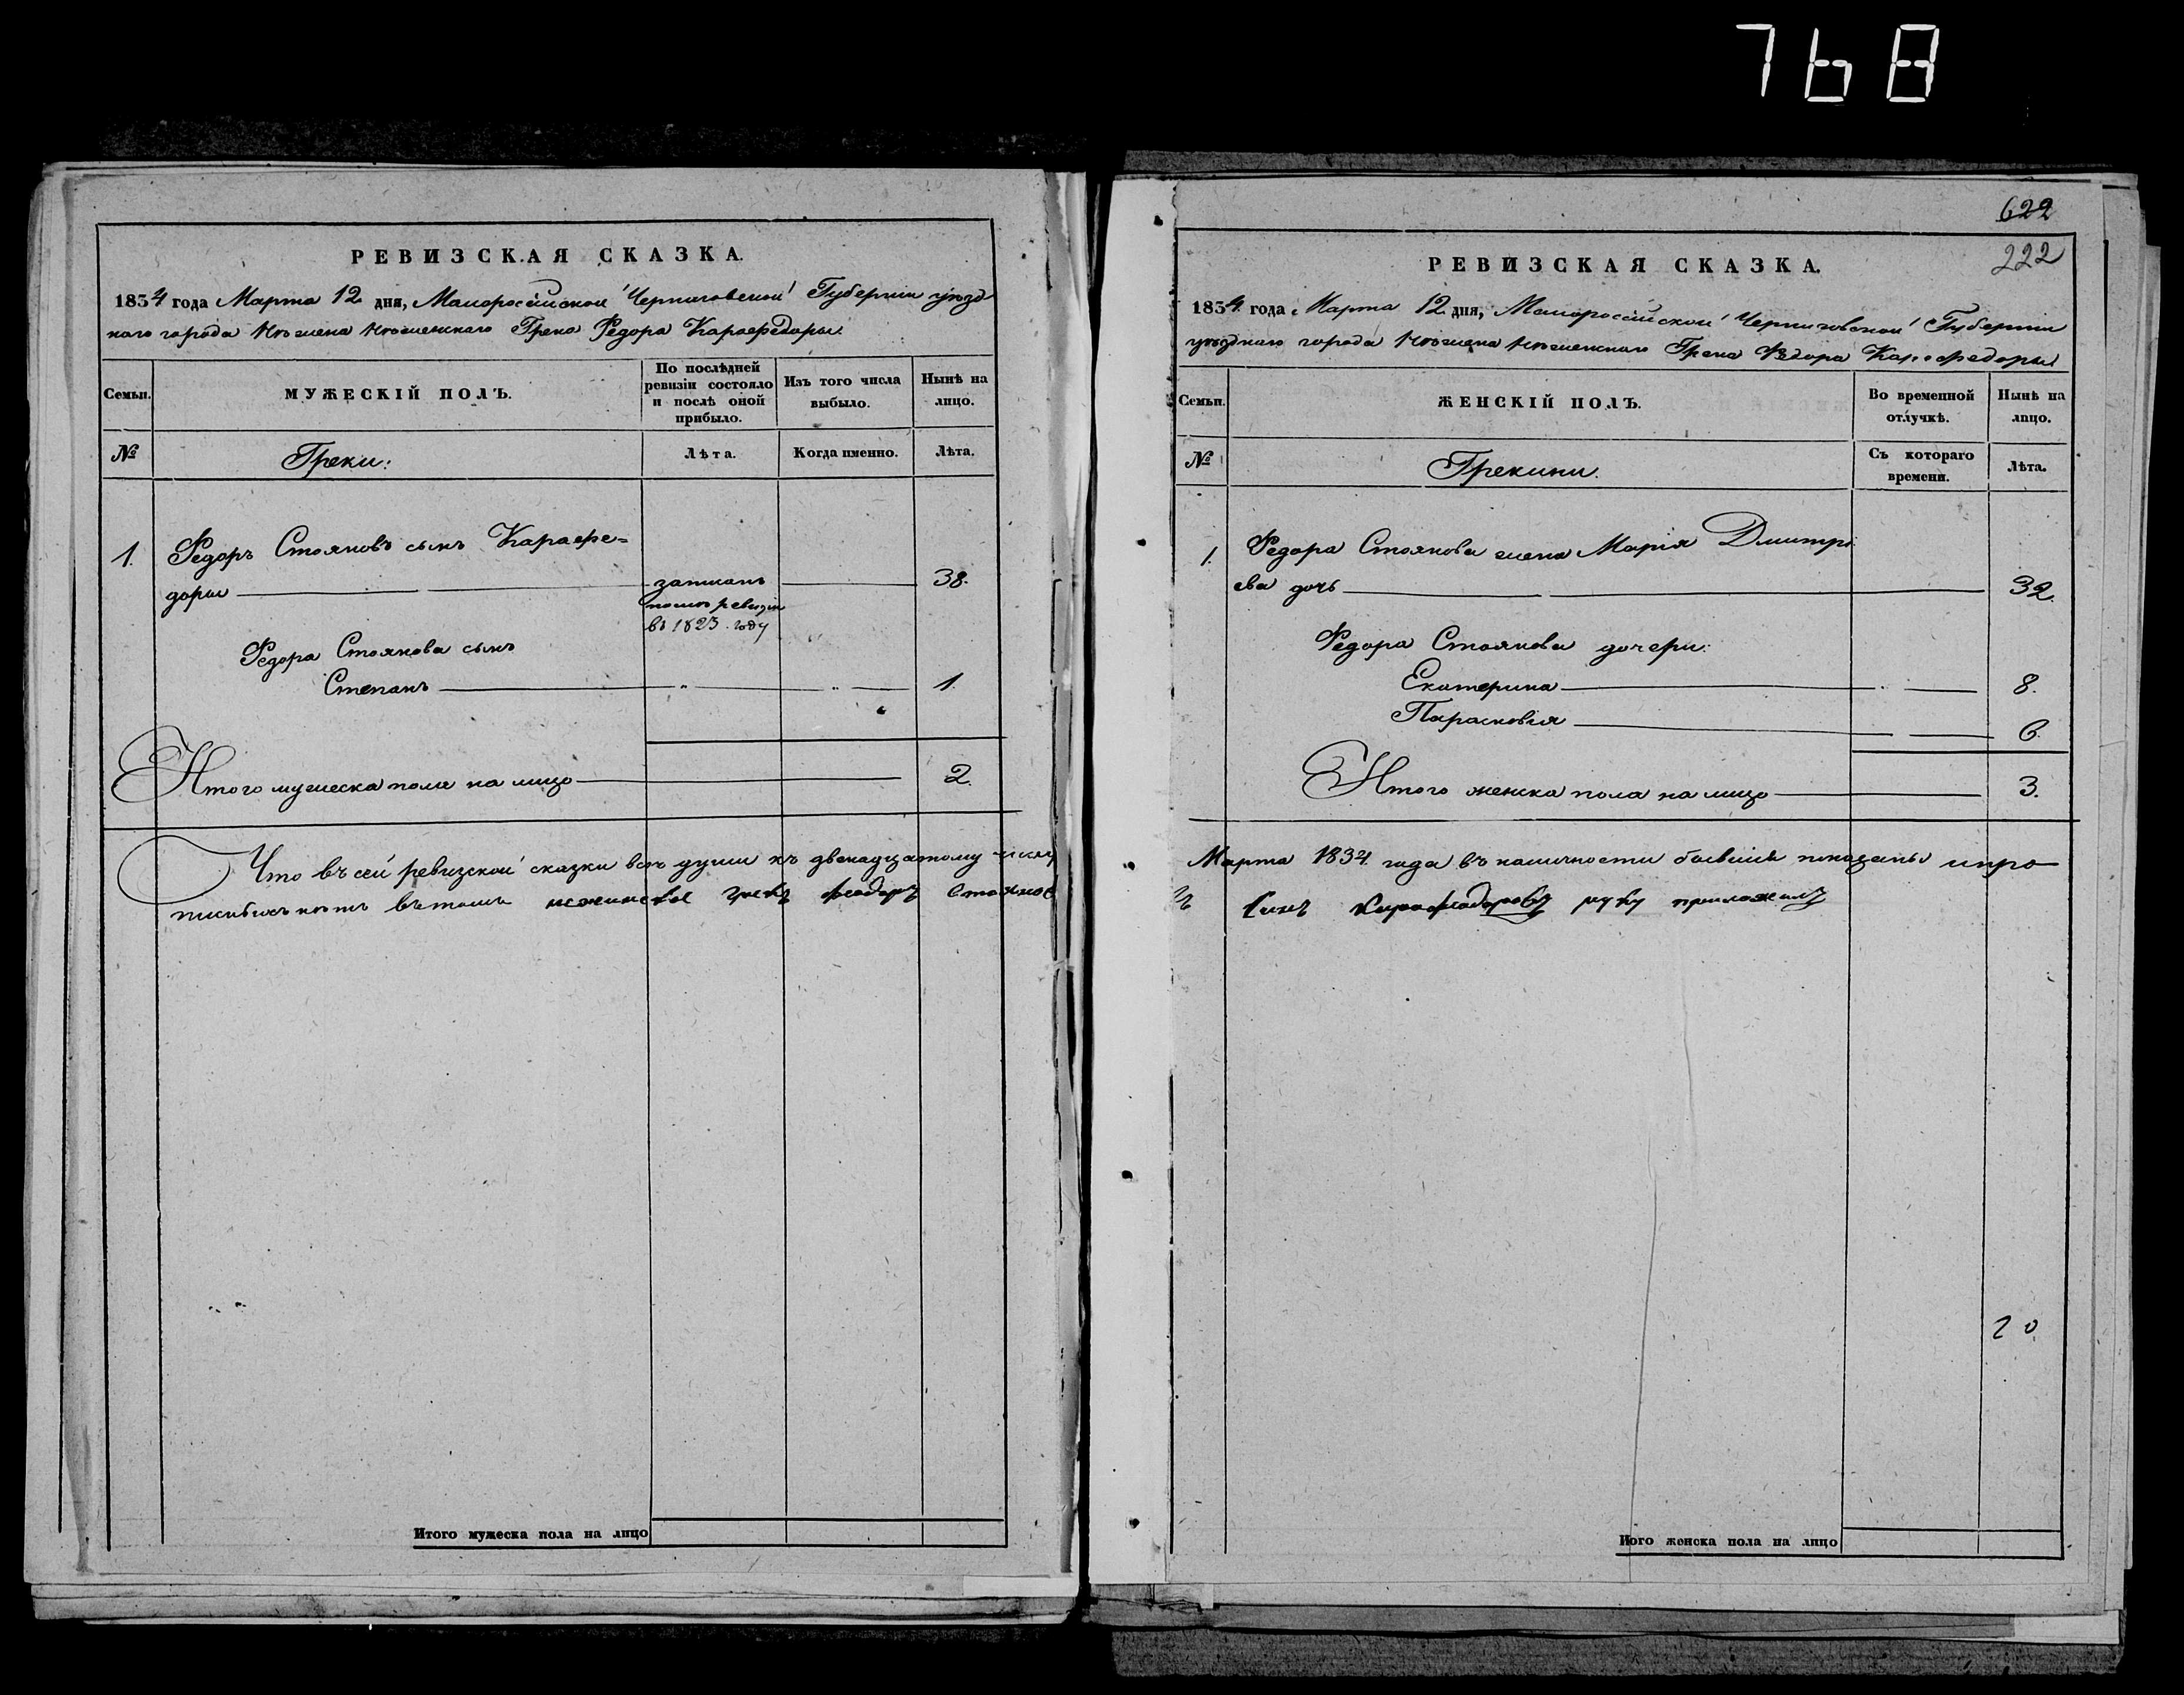 768
РЕВИЗСКАЯ СКАЗКА.
1834 года Марта 12 дня, Малоросссійской Черниговской Губерніи уѣзд-
наго города Нѣжина Нѣжинскаго Грека Ѳедора Карафедоры
Семьи.
МУЖЕСКІЙ ПОЛЪ.
По послѣдней ревизіи состояло и послѣ оной прибыло.
Изъ того числа выбыло.
Нынѣ на лицо.
№
Греки:
Лѣта.
Когда именно.
Лѣта.
1. Ѳедоръ Стояновъ сынъ Карафе=
доры записанъ 38.
послѣ ревизіи
въ 1823 году
Ѳедора Стоянова сынъ
Степанъ " " 1.
Итого мужеска пола на лицо 2.
Что въ сей ревизской сказки всѣ души къ двенадцатому числу
писныхъ нѣтъ въ томъ нежинскій грекъ Феодоръ Стоянов
Итого мужеска пола на лицо
622
222
РЕВИЗСКАЯ СКАЗКА.
1834 года Марта 12 дня, Малороссійской Черниговской Губерніи
уѣзднаго города Нѣжина Нѣжинскаго Грека Ѳедора Карафедоры
Семьи.
ЖЕНСКІЙ ПОЛЪ.
Во временной отлучкѣ.
Нынѣ на лицо.
№
Грекини.
Съ котораго времени.
Лѣта.
1. Ѳедора Стоянова жена Марія Дмитрі
ева дочь 32.
Ѳедора Стоянова дочери:
Екатерина 8.
Парасковія 6.
Итого женска пола на лицо 3.
Марта 1834 года въ наличности бывшія показаны и про
ъ Синъ Карафеодоровъ руку приложилъ
20
Иого женска пола на лицо